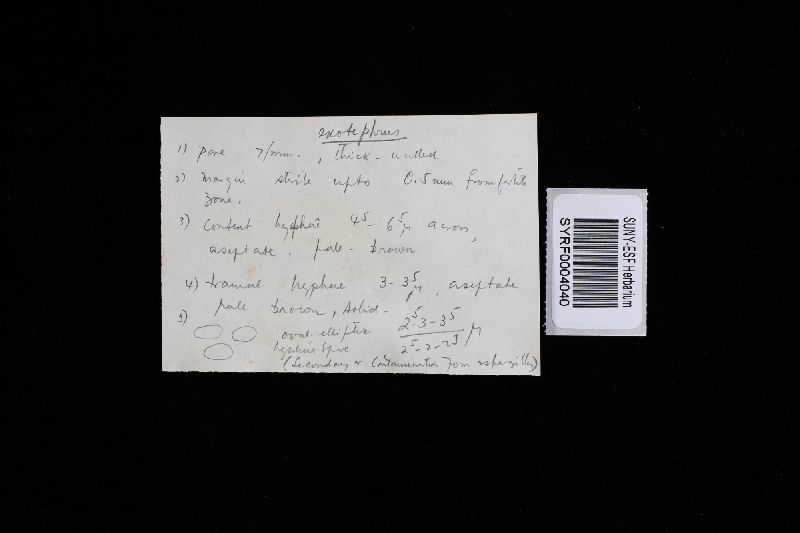 exotephrus
1) pore 7/mm. , thick-walled
2) Margin sterile upto 0.5 mm from fertile
zone.
3) Context hyphae 4⁵- 6⁵ µ across,
aseptate. pale - brown
4) tramal hyphae 3-3⁵ µ, aseptate
pale brown, solid-
5)
oval elliptic
hyaline spore
2⁵-3-3⁵
(Secondary or Contamination from aspergillus)
SUNY-ESF Herbarium
SYRF0004040